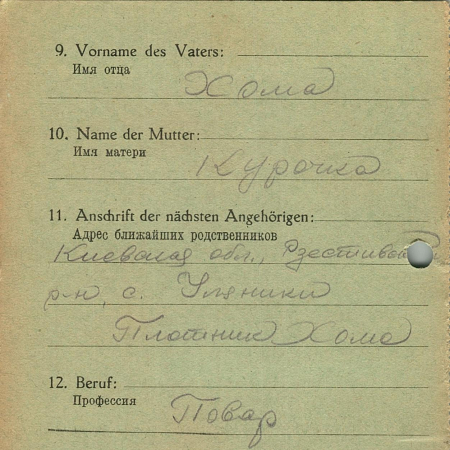 9. Vorname des Vaters:
Имя отца
Хома
10. Name der Mutter:
Имя матери
Курочка
11. Anschrift der nächsten Angehörigen:
Адрес ближайших родственников
Киевская обл.,
р-н, с. Уляники
Плотник Хома
12. Beruf:
Профессия
Повар